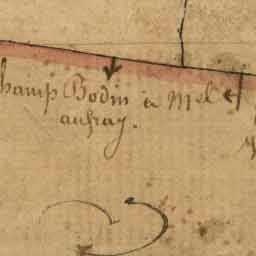 hamp Bodin à Mel
aufray.